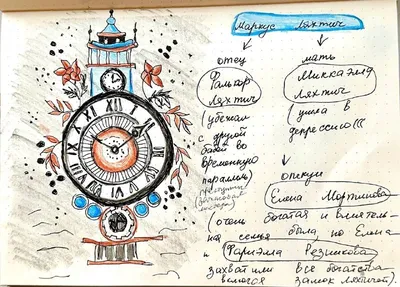 Маркус Ляхтич
отец мать
Фалькор Миккаэлла
Ляхтич Ляхтич
(убежал (ушла в
с другой депрессию)))
бабой во
временную
параллель) опекун
Елена Мортинова
(очень богатая и влиятель-
ная семья была но Елена
и Фариэлла Резникова
захватили все богатства
замок Ляхтичей).